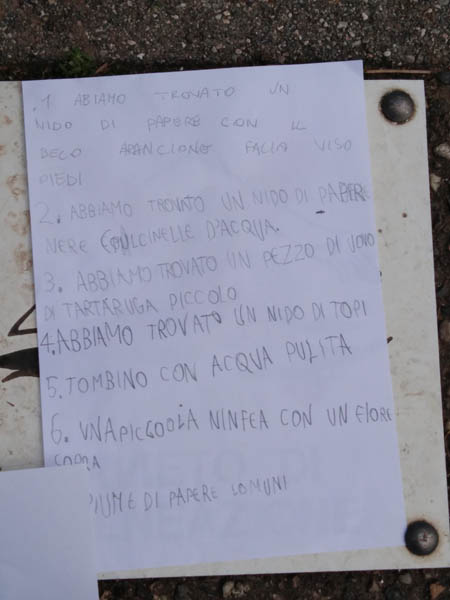 .1 ABIAMO TROVATO UN
NIDO DI PAPERE CON IL
BECO ARANCIONE FALIA VISO
PIEDI
2. ABBIAMO TROVATO UN NIDO DI PAPERE
NERE (PULCINELLE D'ACQUA.
3. ABBIAMO TROVATO UN PEZZO DI UOVO
DI TARTARUGA PICCOLO
4. ABBIAMO TROVATO UN NIDO DI TOPI
5. TOMBINO CON ACQUA PULITA
6. UNA PICCOOLA NINFEA CON UN FIORE
SOPRA
PIUME DI PAPERE COMUNI